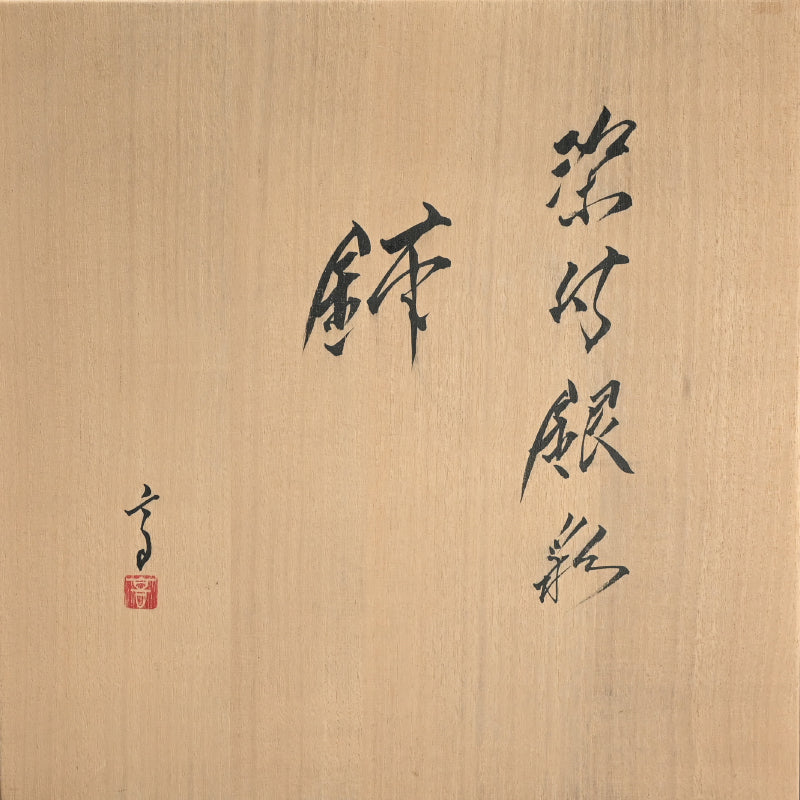 染付銀彩
鉢